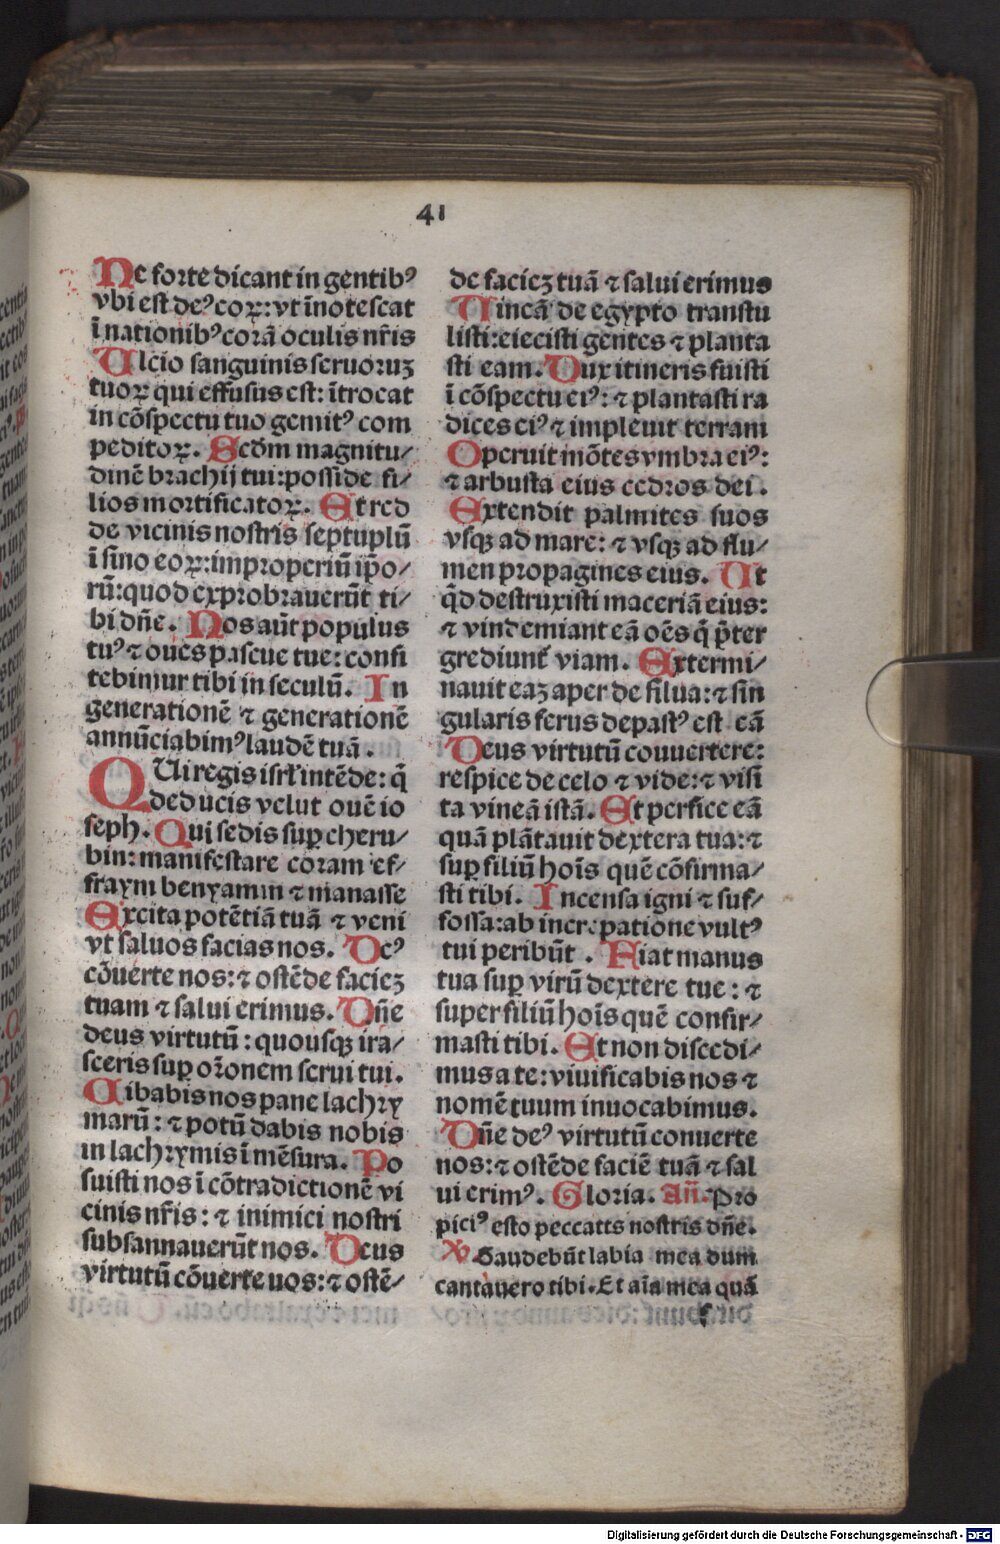 41
Ne forte dicant in gentibꝰ
vbi est deꝰ coꝝ: vt īnotescat
ī nationibꝰ corā oculis nr̄is
Ulcio sanguinis seruoruꝫ
tuoꝝ qui effusus est: ītrocat
in cōspectu tuo gemitꝰ com
peditoꝝ. Scd̄m magnitu/
dinē brachij tui: posside fi/
lios mortificatoꝝ. Et red
de vicinis nostris septuplū
ī sino eoꝝ: improperiū ip̄o/
rū: quod exprobrauerūt ti/
bi dn̄e. Nos aūt populus
tuꝰ ⁊ oues pascue tue: confi
tebimur tibi in seculū. In
generationē ⁊ generationē
annūciabimꝰ laudē tuā.
QUi regis isrl̄ intēde: q̄
deducis velut ouē io
seph. Qui sedis suꝑ cheru/
bin: manifestare coram ef/
fraym benyamin ⁊ manasse
Excita potētiā tuā ⁊ veni
vt saluos facias nos. Deꝰ
cōuerte nos: ⁊ ostēde facieꝫ
tuam ⁊ salui erimus. Dn̄e
deus virtutū: quousqꝫ ira/
sceris suꝑ or̄onem serui tui.
Cibabis nos pane lachry
marū: ⁊ potū dabis nobis
in lachrymis ī mēsura. Po
suisti nos ī cōtradictionē vi
cinis nr̄is: ⁊ inimici nostri
subsannauerūt nos. Deus
virtutū cōuerte nos: ⁊ ostē/
de facieꝫ tuā ⁊ salui erimus
Uineā de egypto transtu
listi: eiecisti gentes ⁊ planta
sti eam. Dux itineris fuisti
ī cōspectu eiꝰ: ⁊ plantasti ra
dices eiꝰ ⁊ impleuit terram
Operuit mōtes vmbra eiꝰ:
⁊ arbusta eius cedros dei.
Extendit palmites suos
vsqꝫ ad mare: ⁊ vsqꝫ ad flu/
men propagines eius. Ut
q̄d destruxisti maceriā eius:
⁊ vindemiant eā oēs q̄ p̄ter
grediunt̄ viam. Extermi/
nauit eaꝫ aper de silua: ⁊ sin
gularis ferus depastꝰ est eā
Deus virtutū couuertere:
respice de celo ⁊ vide: ⁊ visi
ta vineā istā. Et perfice eā
quā plātauit dextera tua: ⁊
suꝑ filiū hoīs quē cōfirma/
sti tibi. Incensa igni ⁊ suf/
fossa: ab increpatione vultꝰ
tui peribūt. Fiat manus
tua suꝑ virū dextere tue: ⁊
super filiū hoīs quē confir/
masti tibi. Et non discedi/
mus a te: viuificabis nos ⁊
nomē tuum inuocabimus.
Dn̄e deꝰ virtutū conuerte
nos: ⁊ ostēde faciē tuā ⁊ sal
ui erimꝰ. Gloria. Añ. Pro
piciꝰ esto peccatis nostris dn̄e.
℣ Gaudebūt labia mea dum
cantauero tibi. Et aīa mea quā
Digitalisierung gefördert durch die Deutsche Forschungsgemeinschaft - DFG